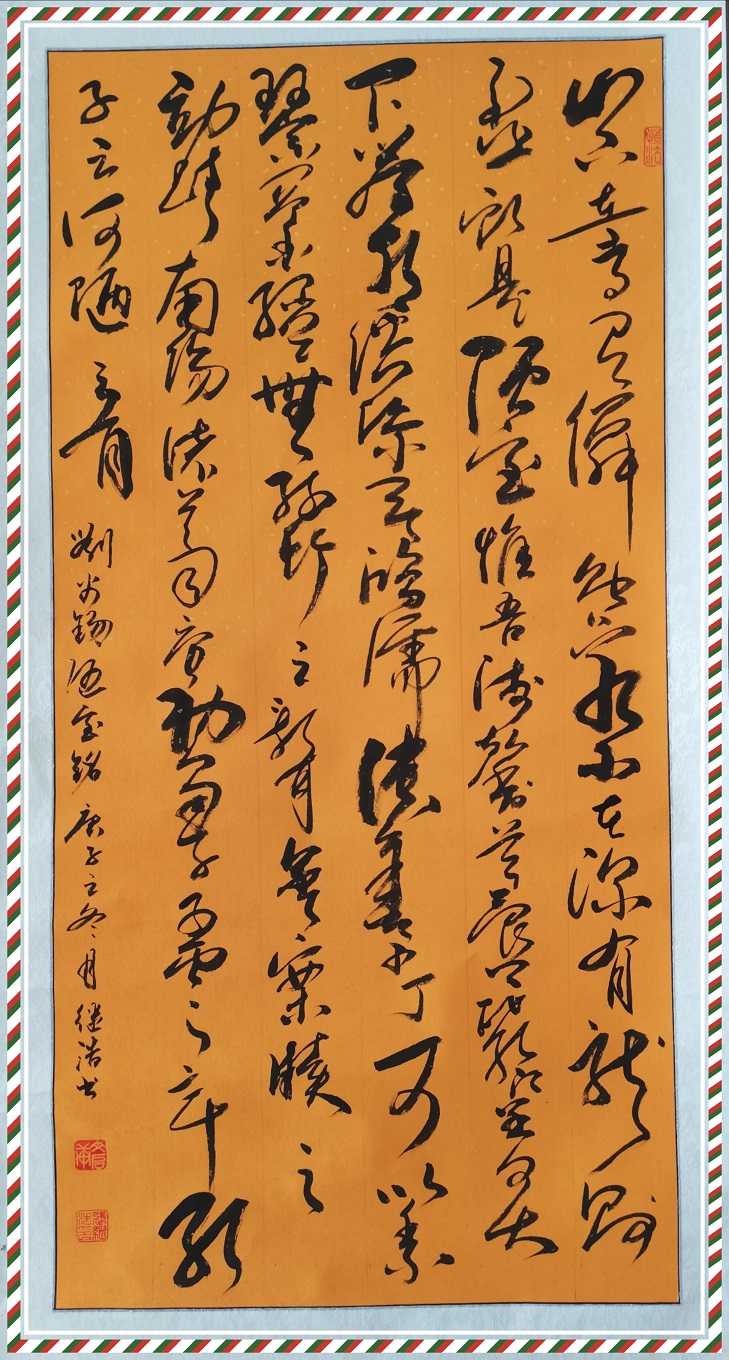 山不在高有僊则名水不在深有龍則
灵斯是陋室惟吾德馨苔痕上階綠草色入
簾青談笑有鴻儒往來無白丁可以調素
琴閱金經無絲竹之亂耳無案牘之
勞形南陽諸葛廬西蜀子雲亭孔
子云何陋之有
劉禹錫陋室銘庚子之冬月继浩书